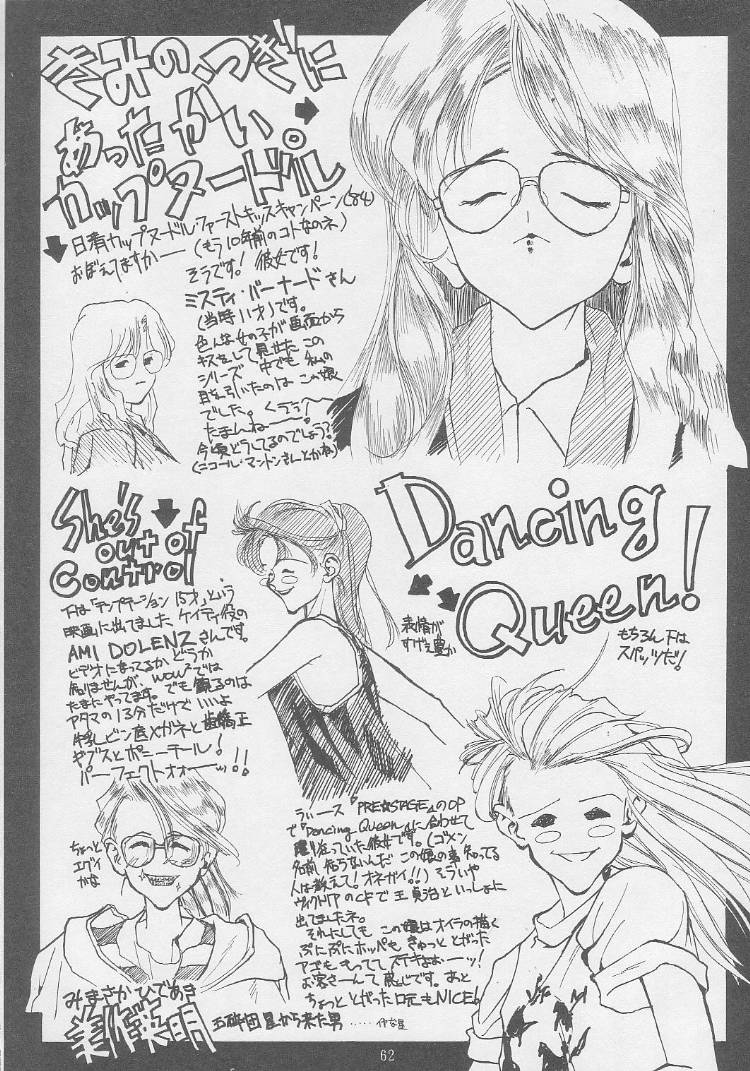 きみの、つぎに
あったかい
カップヌードル
日清カップヌードルファーストキッスキャンペーン('84)
(もう10年前のコトなのネ)
おぼえてますかー
そうです!彼女です!
ミスティ・バーナードさん
(当時11才)です。
色んな女の子が画面から
キスをして見せたこの
シリーズ中でも私の
目を引いたのはこの娘
でした。くうぅ〜
たまんねー
今頃どうしてるのでしょう?
(ニコール・マンドンさんとかね)
She's
out of
Control
下は「テンプテーション15才」という
映画に出てましたケイティ役の
AMI DOLENZさんです。
ビデオになってるかどうか
知りませんが、wowでは
たまにやってます。でも観るのは
アタマの13分だけでいいよ
牛乳ビン底メガネと歯矯正
ヤブスとポニーテール!
パーフェクトォォーッ!!
ちょっと
エグイ
かな
Dancing
Queen!
表情が
すげぇ豊か
もちろん下は
スパッツだ!
うぃース『PRE☆STAGE』のOP
で「Dancing Queen」に合わせて
踊り狂っていた彼女です。(ゴメン
名前知らないんだこの娘の事知ってる
人は教えて!オネガイ!!)そういや
ヴィクトリアのCFで王貞治といっしょに
出てましたネ。
それにしてもこの娘はオイラの描く
ぷにぷにホッペもきゅっととがった
アゴももっててステキよぉーッ!
お客さーんて感じです。あと
ちょっととがった口元もNICE!
みまさかひであき
美作英明
五反田星から来た男
62